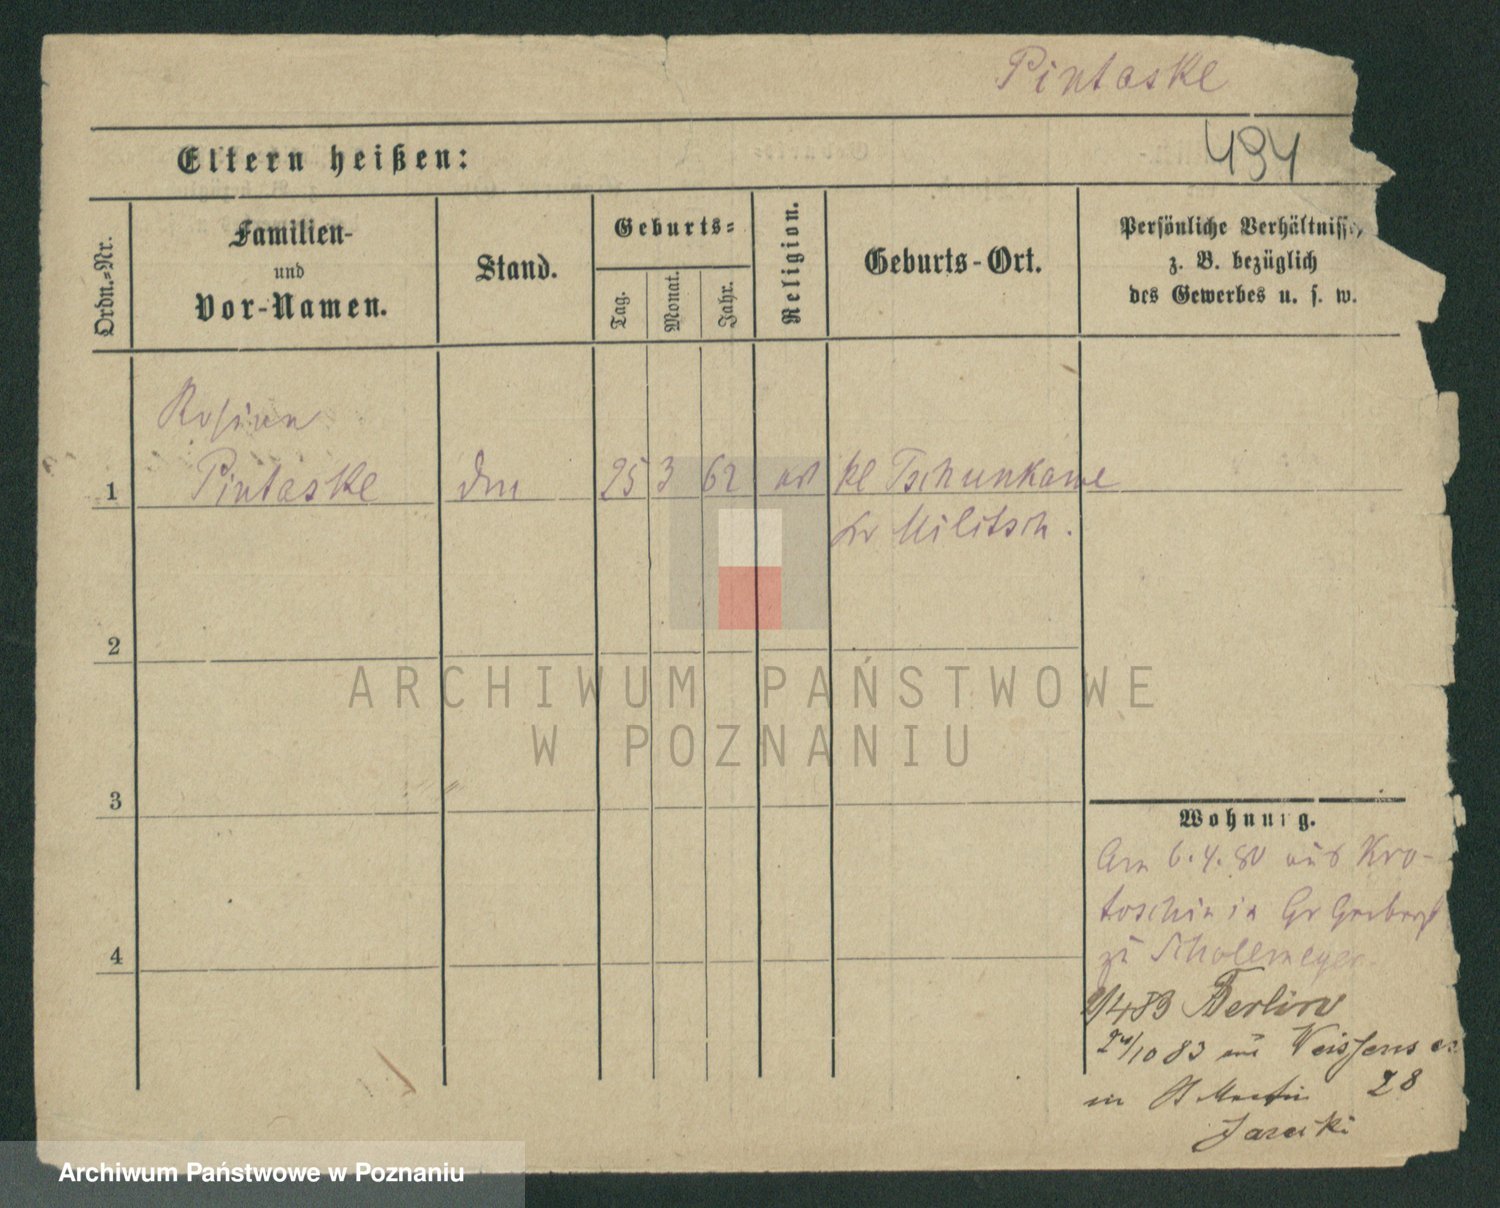 Pintaske
494
Eltern heißen:
Ordn.-Nr.
Familien-
und
Vor-Namen.
Stand.
Geburts-
Tag.
Monat.
Jahr.
Religion.
Geburts-Ort.
Persönliche Verhältnisse
z. B. bezüglich
des Gewerbes u. s. w.
Rosina
1 Pintaske 25 3 62 Kl Tschunkawe
Kr Militsch.
2
3
4
Wohnung.
Am 6.4.80 aus Kro-
toschin in Gr
zu Scholemeyer
1/4 83 Berlin
24/10 83 aus Weissensee
in St Martin 28
Jareski
ARCHIWUM PAŃSTWOWE
W POZNANIU
Archiwum Państwowe w Poznaniu